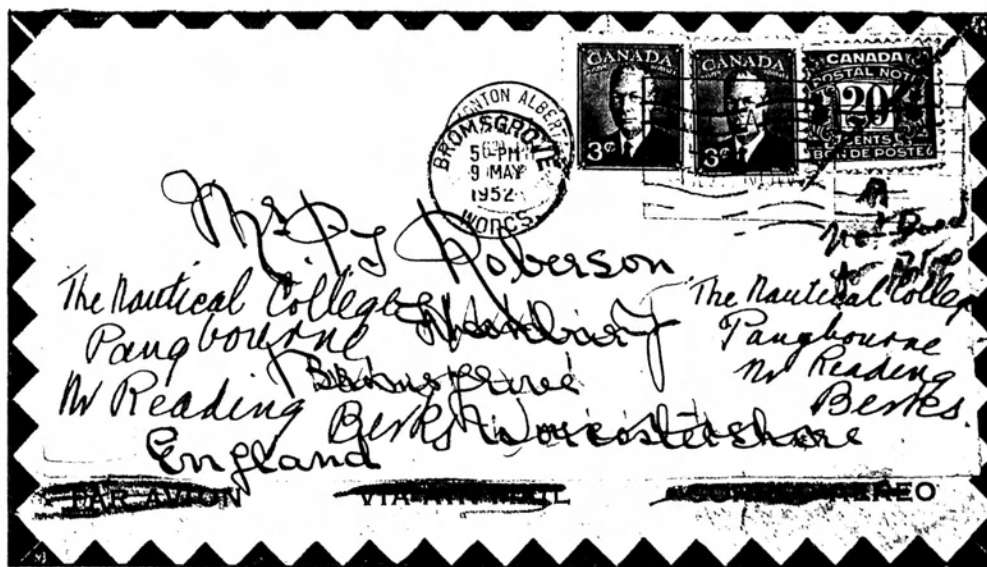 CANADA
3¢
CANADA
3¢
CANADA
POSTAL NOTE
20
CENTS
BON DE POSTE
BROMSGROVE
5 PM
9 MAY
1952
WORCS.
Roberson
The Nautical College
Pangbourne
Nr Reading
Berks
Bromsgrove
Worcestershire
England
The Nautical College
Pangbourne
Nr Reading
Berks
PAR AVION
VIA AIR MAIL